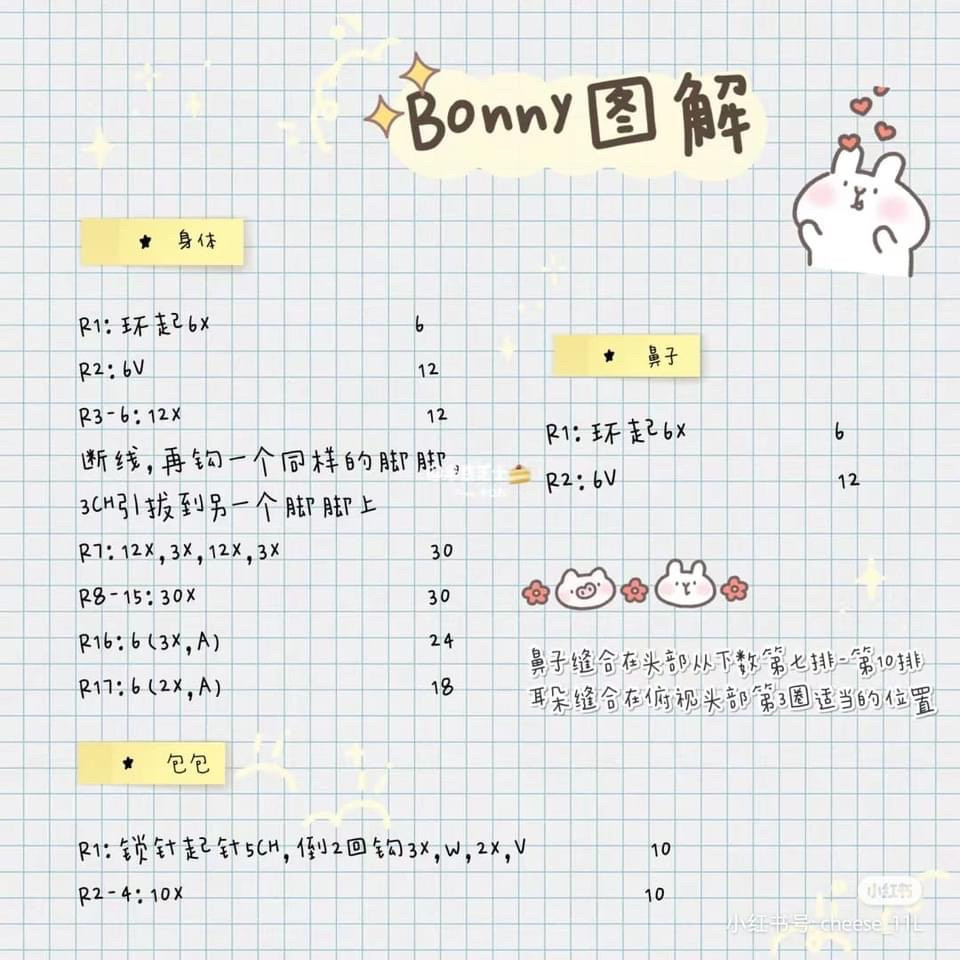 Bonny图解
★ 身体
R1:环起6X 6
R2:6V 12
R3-6:12X 12
断线,再钩一个同样的脚脚,
3CH引拔到另一个脚脚上
R7:12X,3X,12X,3X 30
R8-15:30X 30
R16:6(3X,A) 24
R17:6(2X,A) 18
★ 鼻子
R1:环起6X 6
R2:6V 12
鼻子缝合在头部从下数第七排-第10排
耳朵缝合在俯视头部第3圈适当的位置
★ 包包
R1:锁针起针5CH,倒2回钩3X,W,2X,V 10
R2-4:10X 10
小红书
小红书号:cheese_11L